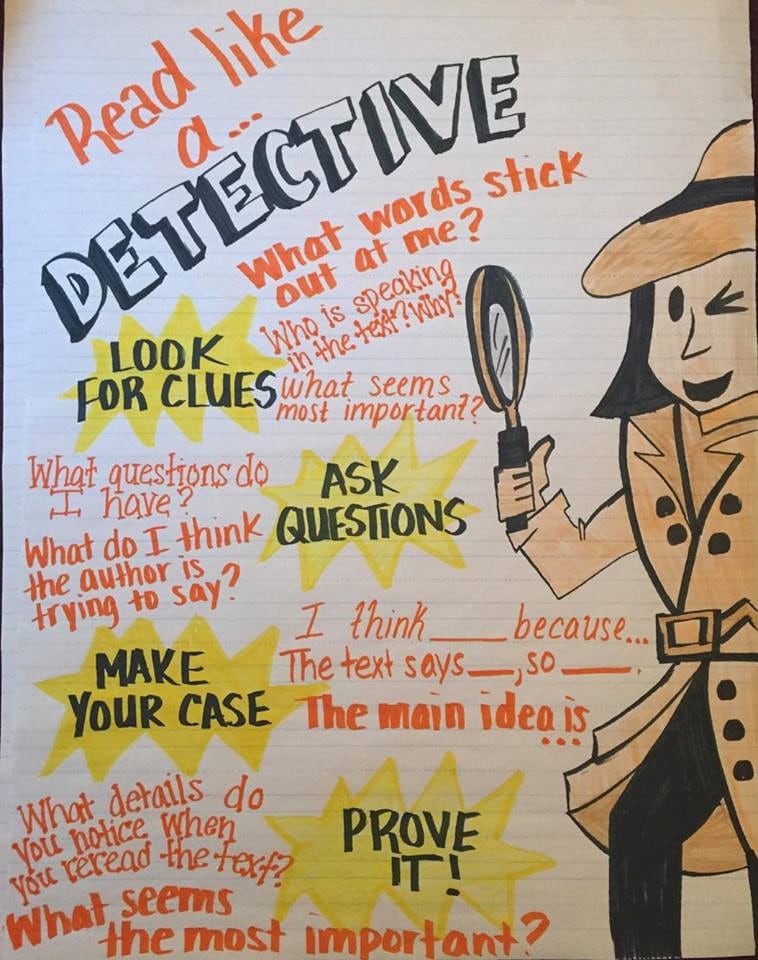 Read like
a...
DETECTIVE
What words stick
out at me?
Who is speaking
in the text? Why?
what seems
most important?
LOOK
FOR CLUES
What questions do
I have?
What do I think
the author is
trying to say?
ASK
QUESTIONS
I think ___ because...
The text says ___, so ___.
The main idea is
...
MAKE
YOUR CASE
What details do
you notice when
you reread the text?
What seems
the most important?
PROVE
IT!